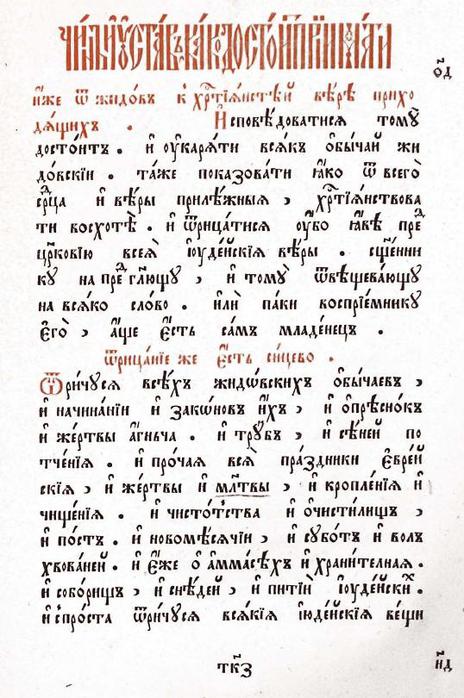 ЧИ́НЪ И҆ ОУ҆СТА́ВЪ КА́КѠ ДОСТО́ИТЪ ПРІИМА́ТИ
ѻ҃д
и҆́же ѿ жидѡ́въ к хрⷭ҇тїѧ́нстѣй вѣ́рѣ прихо
дѧ́щихъ . И҆сповѣ́доватисѧ томꙋ̀
досто́итъ . и҆ ᲂу҆карѧ́ти всѧ́къ ѻ҆бы́чай жи
до́вскїи . та́же показова́ти ꙗ҆́ко ѿ всегѡ̀
срⷣца и҆ вѣ́ры прилѣ́жныѧ , хрⷭ҇тїѧ́нствова
ти восхотѣ̀ . и҆ ѿрица́тисѧ ᲂу҆́бо ꙗ҆́вѣ преⷣ
цр҃ко́вїю всеѧ̀ і҆ꙋде́йскїѧ вѣ́ры . сщ҃е́нни
кꙋ на преⷣ гл҃ющꙋ , и҆ томꙋ̀ ѿвѣщева́ющꙋ
на всѧ́ко сло́во . и҆лѝ па́ки воспрїе́мникꙋ
є҆гѡ̀ , а҆́ще є҆́сть са́мъ младе́нецъ .
Ѿрица́нїе же є҆́сть си́цево .
Ѿрича́юсѧ всѣ́хъ жидо́вскихъ ѻ҆бы́чаевъ ,
и҆ начина́нїи и҆ зако́нѡвъ и҆́хъ , и҆ ѻ҆прѣсно́къ
и҆ же́ртвы а҆́гньча . и҆ трꙋ́бъ , и҆ сѣ́ней по
тче́нїѧ . и҆ про́чаѧ всѧ̀ пра́здники є҆вре́й
скїѧ , и҆ же́ртвы и҆ мл҃твы , и҆ кропле́нїѧ и҆
чище́нїѧ . и҆ чистотⷭ҇тва и҆ ѻ҆чисти́лищъ ,
и҆ по́стъ . и҆ новомѣ́сѧчїи , и҆ сꙋбо́тъ и҆ волъ
хвова́ней . и҆ є҆́же ѻ҆ а҆ммасѣ́хъ и҆ храни́телнаѧ .
и҆ собо́рищъ , и҆ снѣ́дей , и҆ питїѝ і҆ꙋде́йскиⷯ .
и҆ спро́ста ѿрича́юсѧ всѧ́кїѧ і҆ꙋде́йскїѧ ве́щи
тк҃з
и҃д